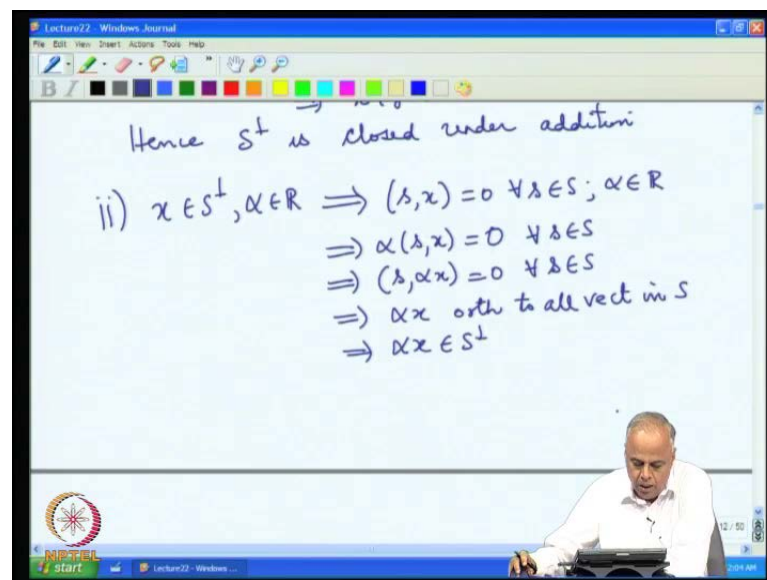 Lecture22 - Windows Journal
File Edit View Insert Actions Tools Help
B I
Hence S⊥ is closed under addition
ii) x ∈ S⊥, α ∈ ℝ ⟹ (s, x) = 0 ∀ s ∈ S ; α ∈ ℝ
⟹ α(s, x) = 0 ∀ s ∈ S
⟹ (s, αx) = 0 ∀ s ∈ S
⟹ αx orth to all vect in S
⟹ αx ∈ S⊥
12 / 50
NPTEL
start Lecture22 - Windows ... 2:04 AM